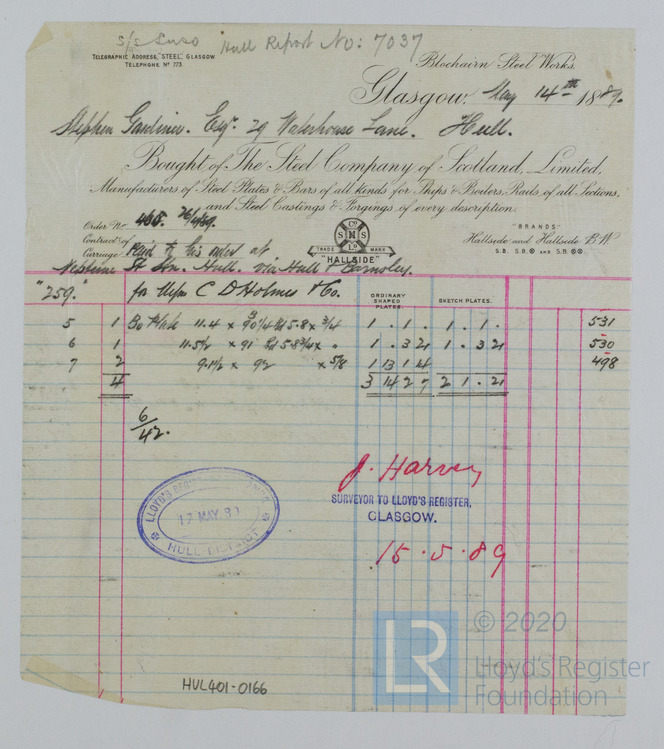 s/s Hull Report No: 7037
TELEGRAPHIC ADDRESS, "STEEL", GLASGOW
TELEPHONE Nº 773.
Blochairn Steel Works.
Glasgow. May 14th 1889.
Stephen Gardiner. Esqr. 29 Waterhouse Lane. Hull.
Bought of The Steel Company of Scotland, Limited,
Manufacturers of Steel Plates & Bars of all kinds for Ships & Boilers, Rails of all Sections,
and Steel Castings & Forgings of every description.
Order No.
Contract of
Carriage paid to his order at
SCº OF S Lº
TRADE MARK
"HALLSIDE"
"BRANDS"
Hallside and Hallside B.W.
S.B. S.B.⊗ AND S.B.⊗⊗
Neptune St Stn. Hull. via Hull & Barnsley.
"259." for Messrs C D Holmes & Co.
ORDINARY SHAPED PLATES.
SKETCH PLATES.
5 1 11.4 x 5.8 x 3/4 1 . 1 . 1 . 1 . 531
6 1 11.5½ x 91 5.8¾ x " 1 . 3 21 1 . 3 21 530
7 2 9.1½ x 92 x 5/8 1 13 1 4 498
4 3 14 2 7 2 1 . 21
6/42.
J. Harvey
SURVEYOR TO LLOYD'S REGISTER,
GLASGOW.
15.5.89
LLOYD'S
17 MAY 89
HULL-DISTRICT
HUL401-0166
LR
© 2020
Lloyd's Register
Foundation